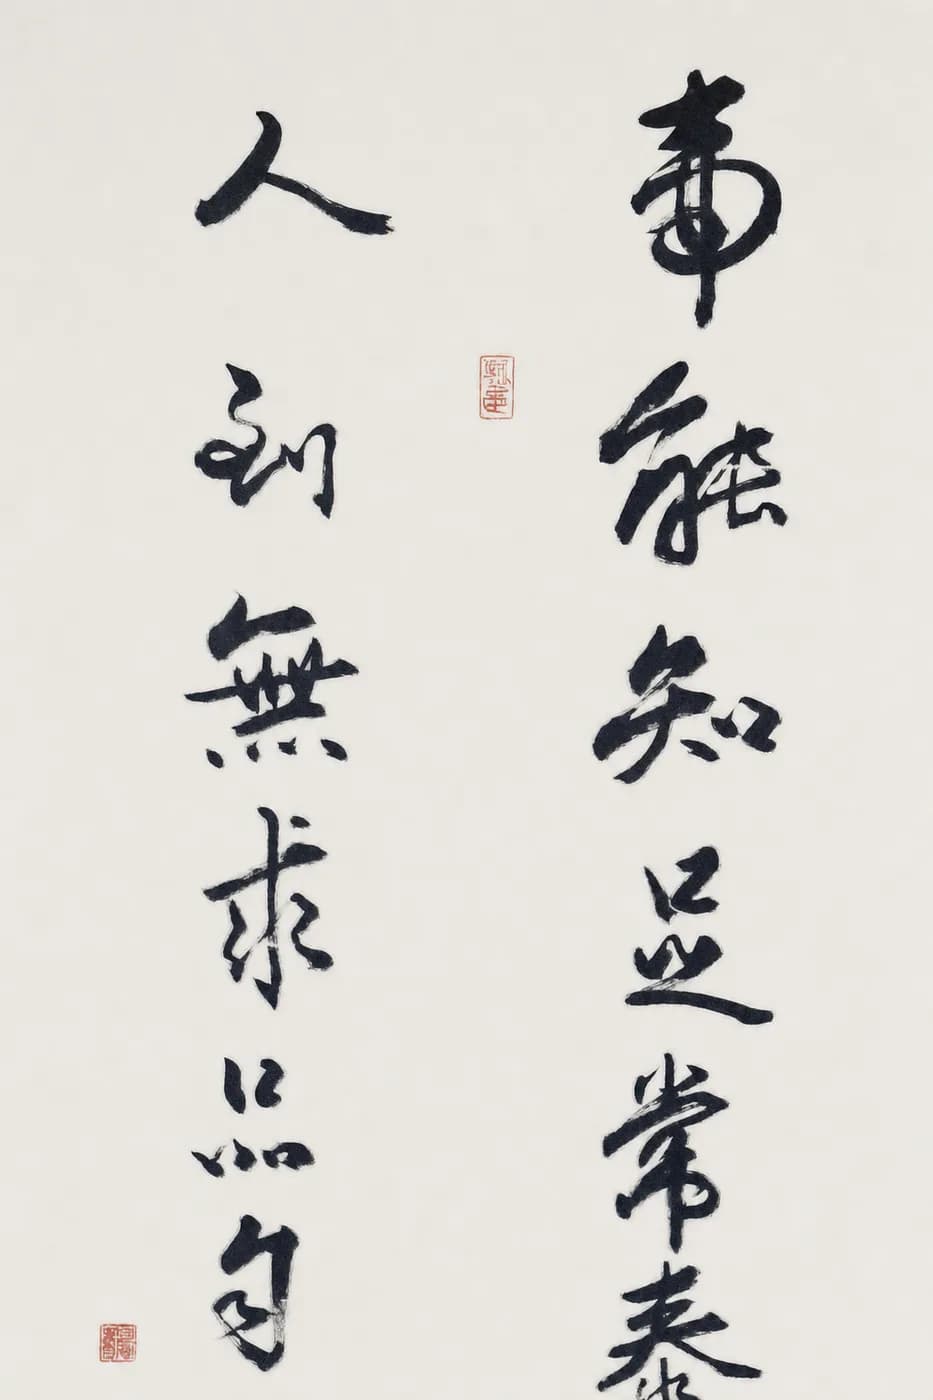 事能知足常泰
人到無求品自